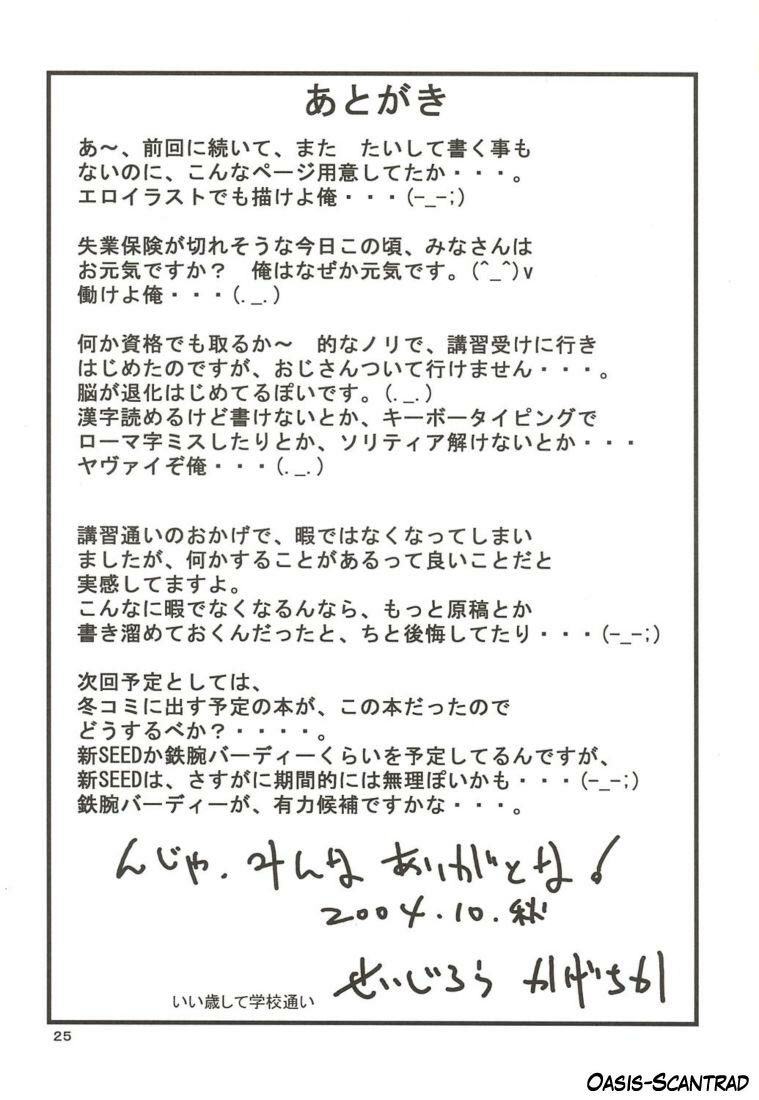 あとがき
あ～、前回に続いて、また　たいして書く事も
ないのに、こんなページ用意してたか・・・。
エロイラストでも描けよ俺・・・(-_-;)
失業保険が切れそうな今日この頃、みなさんは
お元気ですか？　俺はなぜか元気です。(^_^)v
働けよ俺・・・(._.)
何か資格でも取るか～　的なノリで、講習受けに行き
はじめたのですが、おじさんついて行けません・・・。
脳が退化はじめてるぽいです。(._.)
漢字読めるけど書けないとか、キーボータイピングで
ローマ字ミスしたりとか、ソリティア解けないとか・・・
ヤヴァイぞ俺・・・(._.)
講習通いのおかげで、暇ではなくなってしまい
ましたが、何かすることがあるって良いことだと
実感してますよ。
こんなに暇でなくなるんなら、もっと原稿とか
書き溜めておくんだったと、ちと後悔してたり・・・(-_-;)
次回予定としては、
冬コミに出す予定の本が、この本だったので
どうするべか？・・・・。
新SEEDか鉄腕バーディーくらいを予定してるんですが、
新SEEDは、さすがに期間的には無理ぽいかも・・・(-_-;)
鉄腕バーディーが、有力候補ですかな・・・。
んじゃ、みんな ありがとな！
2004.10.秋
せいじろう かげちか
いい歳して学校通い
25
Oasis-Scantrad